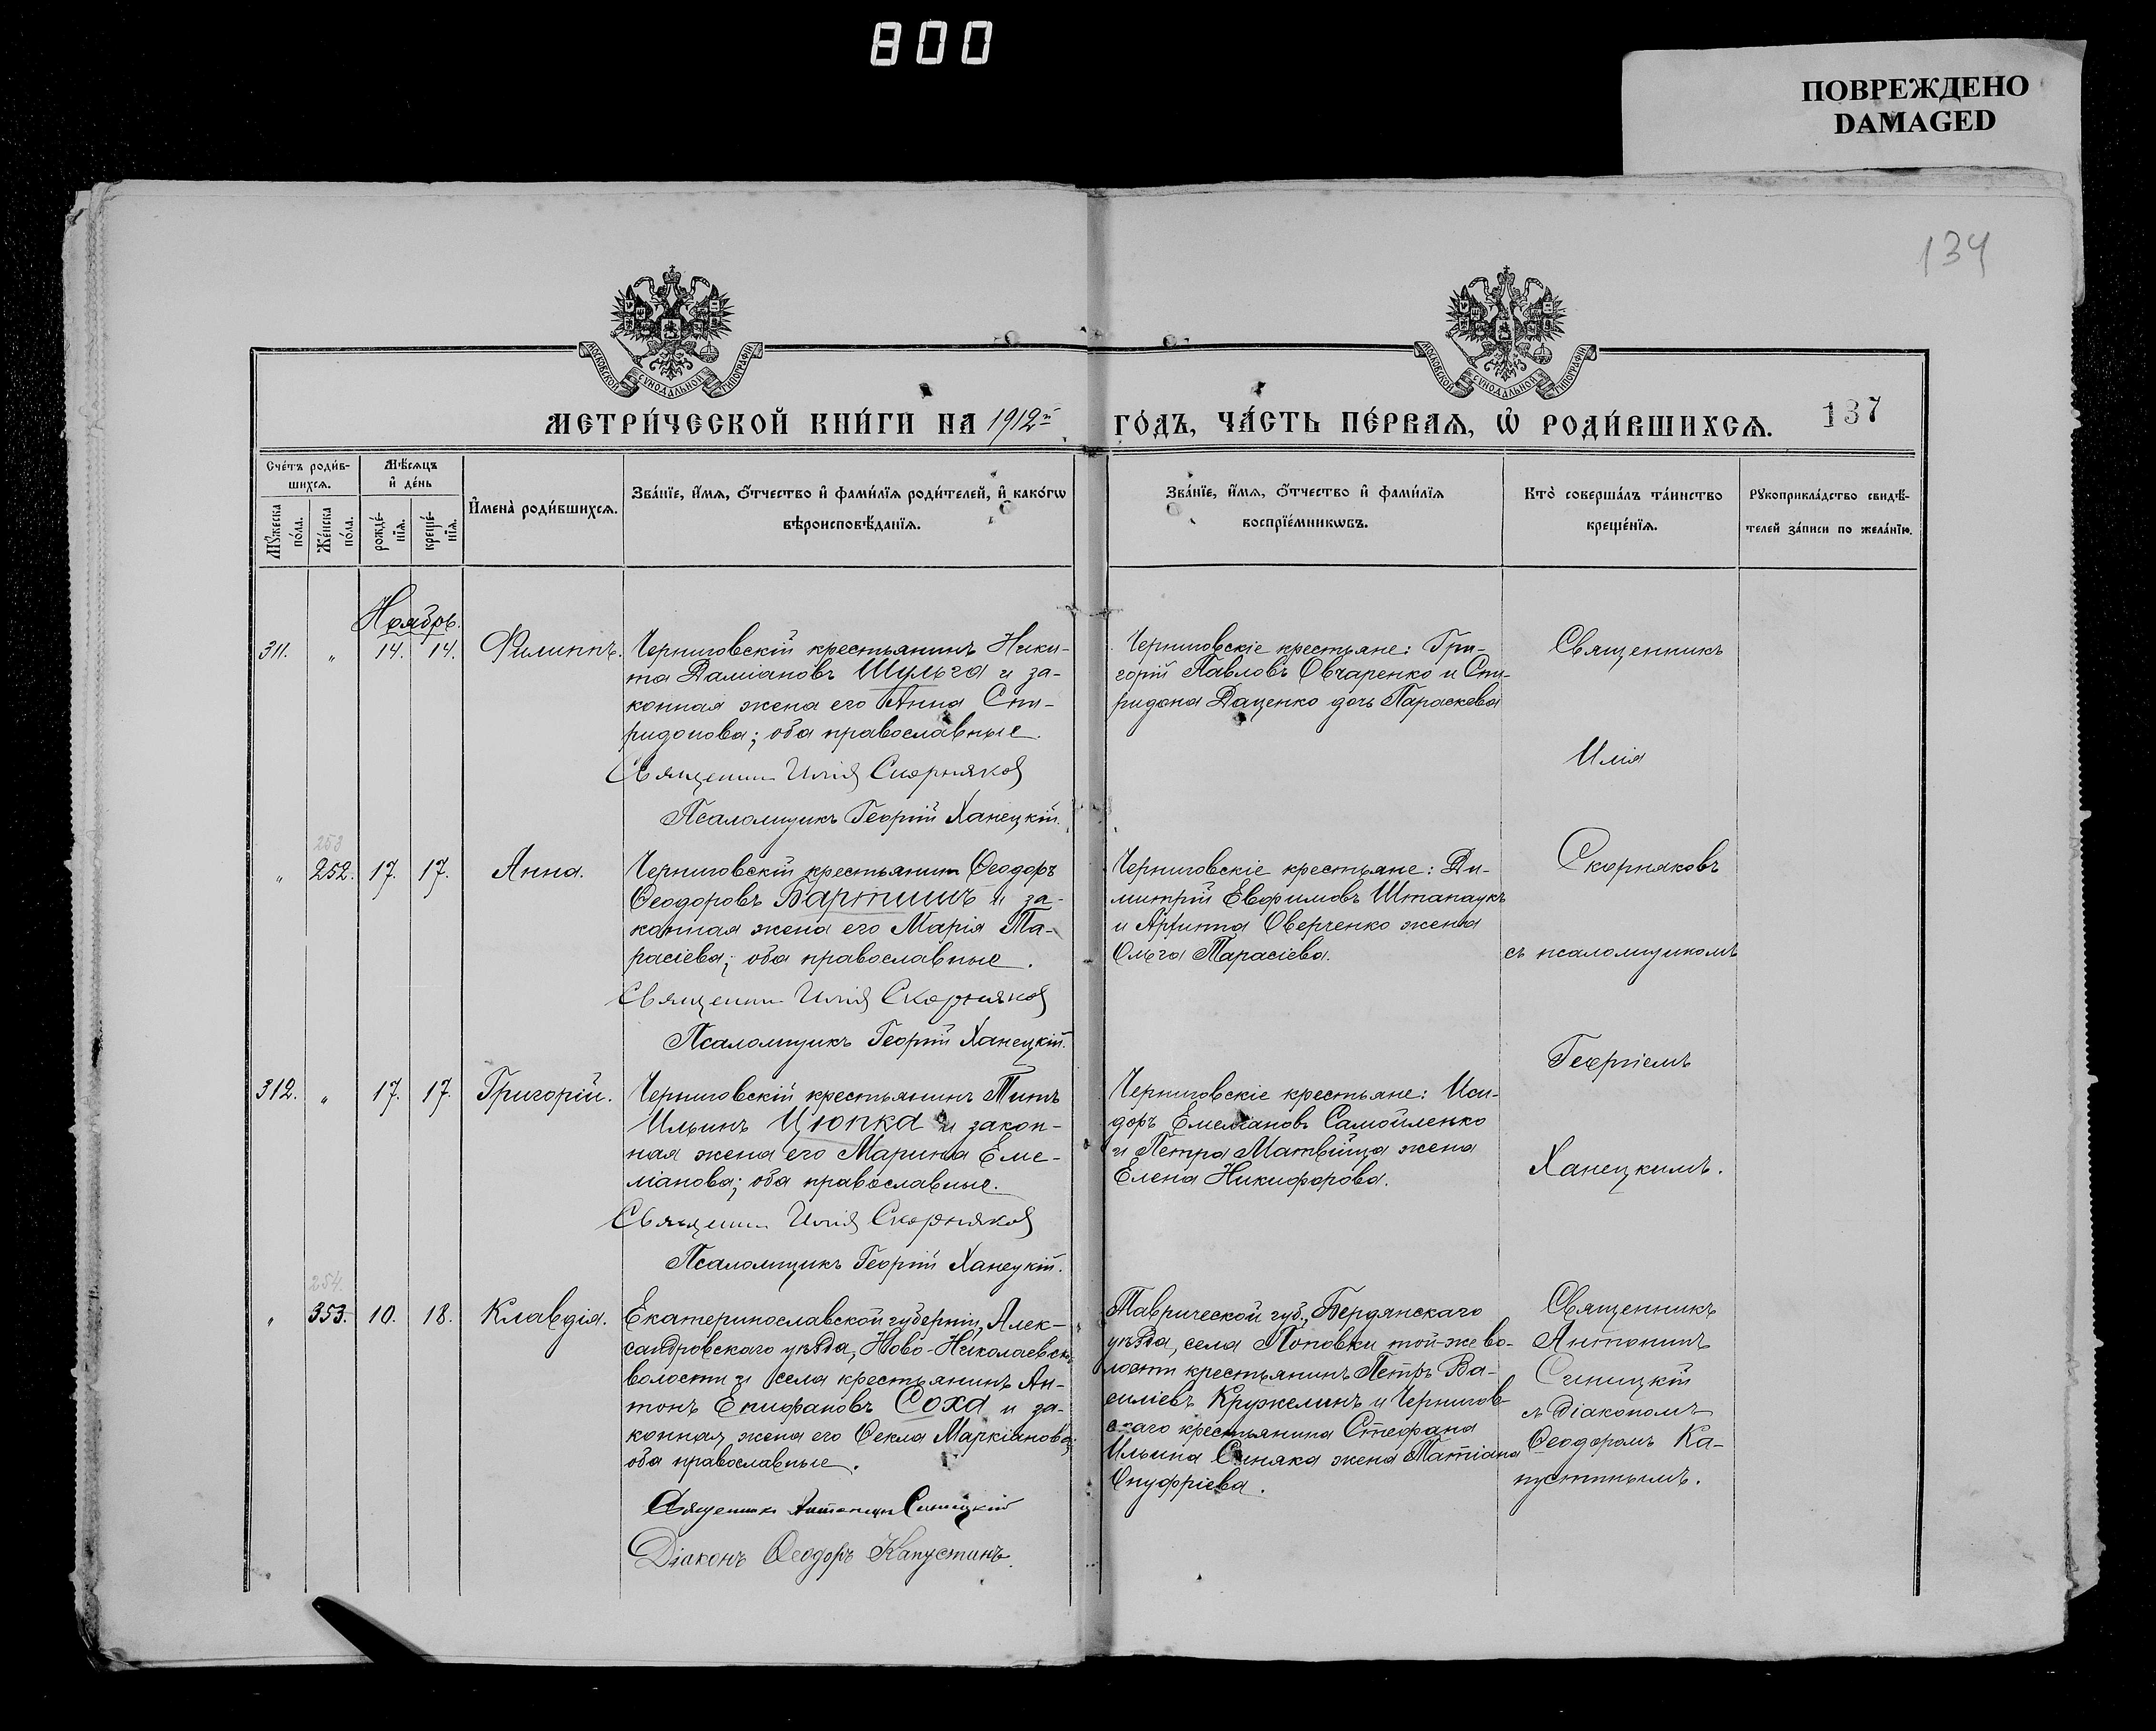 800
ПОВРЕЖДЕНО
DAMAGED
134
МОСКОВСКОЙ СУНОДАЛЬНОЙ ТИПОГРАФІИ
МОСКОВСКОЙ СУНОДАЛЬНОЙ ТИПОГРАФІИ
МЕТРИ́ЧЕСКОЙ КНИ́ГИ НА 1912й
ГО́ДЪ, ЧА́СТЬ ПЕ́РВАѦ, Ѡ҆ РОДИ́ВШИХСѦ.
137
Сче́тъ роди́в-
шихсѧ.
Мѣ́сѧцъ
и҆ де́нь
Мꙋ́жеска по́ла.
Же́нска по́ла.
рожде́-
нїѧ.
креще́-
нїѧ.
И҆мена̀ роди́вшихсѧ.
Зва́нїе, и҆́мѧ, ѻ҆́тчество и҆ фами́лїѧ роди́телей, и҆ како́гѡ
вѣроисповѣ́данїѧ.
Зва́нїе, и҆́мѧ, ѻ҆́тчество и҆ фами́лїѧ
воспрїе́мникѡвъ.
Кто̀ соверша́лъ та́инство
креще́нїѧ.
Рꙋкоприкла́дство свидѣ́-
телей за́писи по жела́нїю.
Ноябрь.
311. „ 14. 14. Филиппъ.
Черниговскій крестьянинъ Ники-
та Даміановъ Шульга и за-
конная жена его Анна Спи-
ридонова; оба православные.
Священникъ Илія Скорняковъ
Псаломщикъ Георгій Ханецкій.
Черниговскіе крестьяне: Гри-
горій Павловъ Овчаренко и Спи-
ридона Даценко дочь Параскева
Священникъ
Илія
Скорняковъ
съ псаломщикомъ
Георгіемъ
Ханецкимъ.
253
„ 252. 17. 17. Анна.
Черниговскій крестьянинъ Ѳеодоръ
Ѳеодоровъ Бартишъ и за-
конная жена его Марія Та-
расіева; оба православные.
Священникъ Илія Скорняковъ
Псаломщикъ Георгій Ханецкій.
Черниговскіе крестьяне: Ди-
митрій Евфимовъ Штапаукъ
и Архиппа Оверченко жена
Ольга Тарасіева.
312. „ 17. 17. Григорій.
Черниговскій крестьянинъ Титъ
Ильинъ Цюпка и закон-
ная жена его Марина Еме-
ліанова; оба православные.
Священникъ Илія Скорняковъ
Псаломщикъ Георгій Ханецкій.
Черниговскіе крестьяне: Иси-
доръ Емеліановъ Самойленко
и Петра Матвійца жена
Елена Никифорова.
254.
„ 353. 10. 18. Клавдія.
Екатеринославской губерніи, Алек-
сандровскаго уѣзда, Ново-Николаевской
волости и села крестьянинъ Ан-
тонъ Епифановъ Соха и за-
конная жена его Ѳекла Маркіанова;
оба православные.
Священникъ Антонинъ Синицкій
Діаконъ Ѳеодоръ Капустинъ.
Таврической губ., Бердянскаго
уѣзда, села Поповки той-же во-
лости крестьянинъ Петръ Ва-
силіевъ Кружелинъ и Чернигов-
скаго крестьянина Стефана
Ильина Синяка жена Татіана
Онуфріева.
Священникъ
Антонинъ
Синицкій
съ діакономъ
Ѳеодоромъ Ка-
пустинымъ.